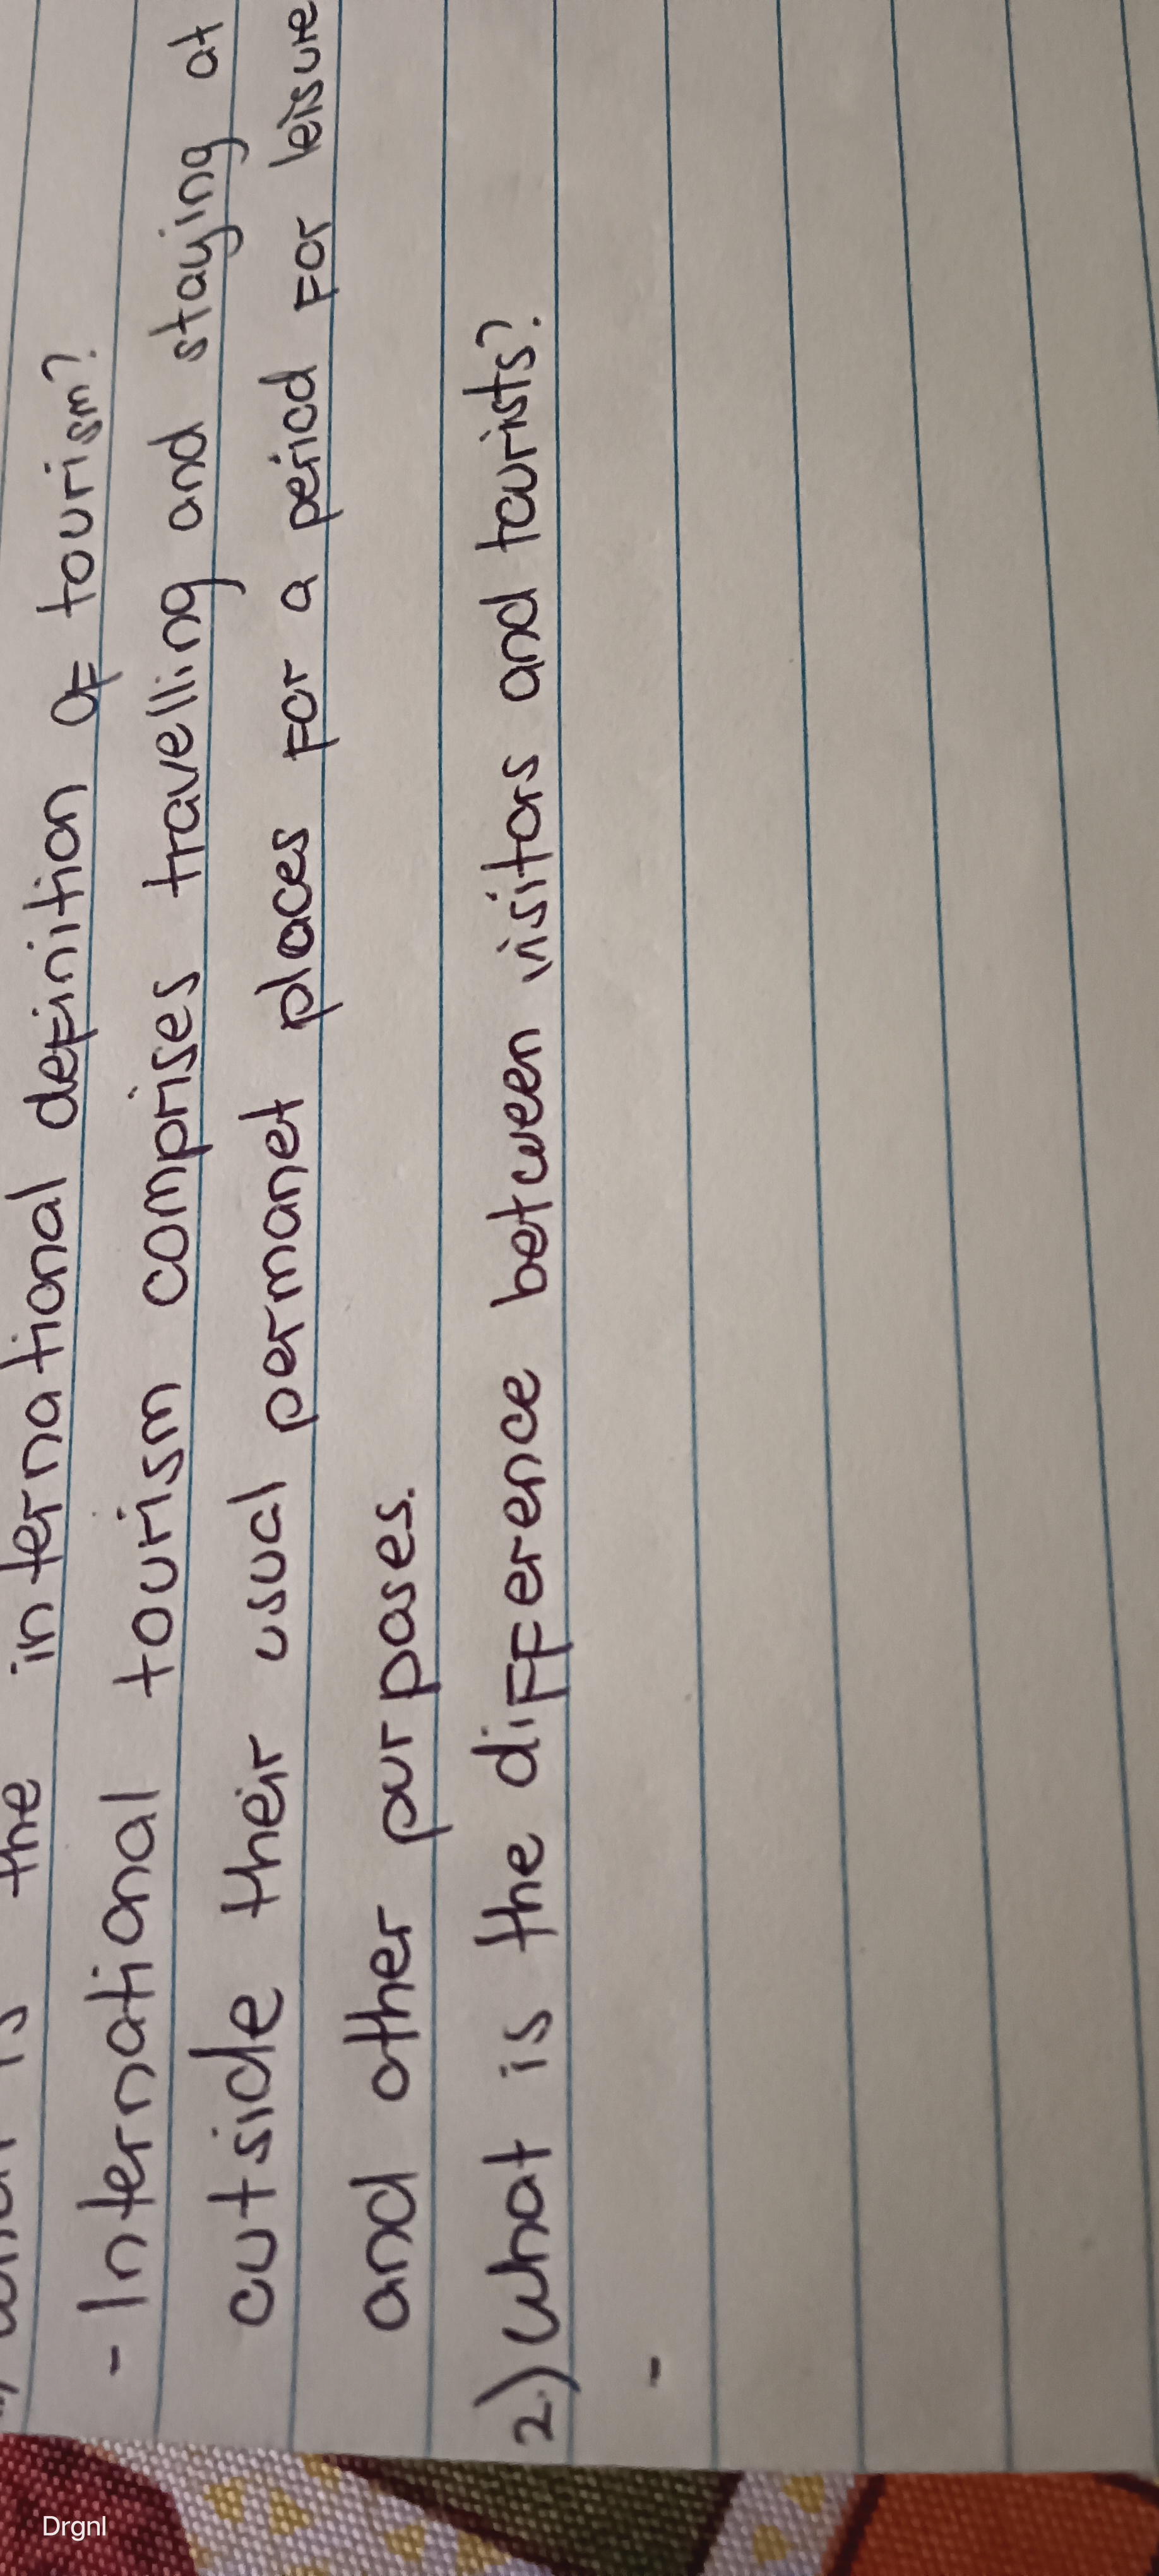 the international definition of tourism?
- International tourism comprises travelling and staying at
outside their usual permanet places for a period for leisure
and other purposes.
2) What is the difference between visitors and tourists?
-
Drgnl